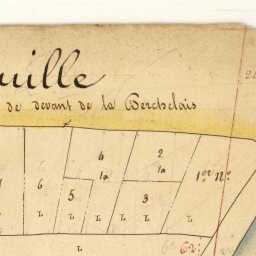 uille
de devant de la Berchelais
4 2
1a 1a 1er n°
6 5 3
L L L L
L